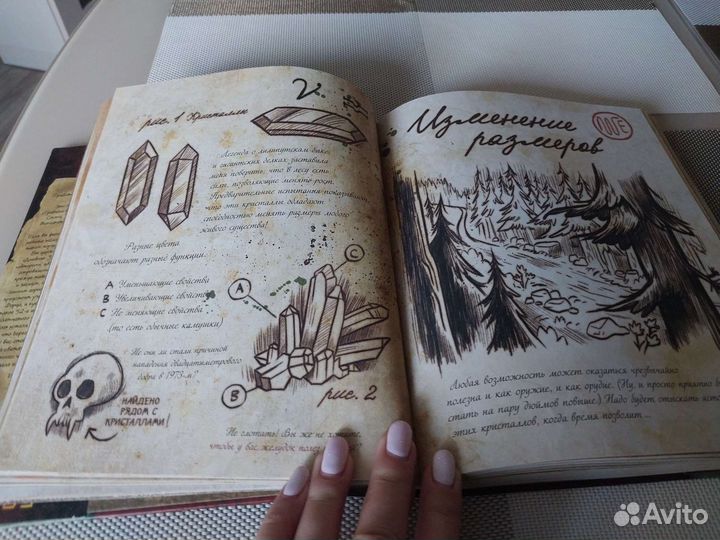 рис. 1 Кристаллы
Легенда о лилипутском быке
и гигантских белках заставила
меня поверить, что в лесу есть
силы, позволяющие менять рост.
Предварительные испытания показывают,
что эти кристаллы обладают
способностью менять размеры любого
живого существа!
Разные цвета
обозначают разные функции.
A Уменьшающие свойства
B Увеличивающие свойства
C Не меняющие свойства
(то есть обычные камушки)
A
C
B
рис. 2
Не они ли стали причиной
нападения двадцатиметрового
бобра в 1973-м?
НАЙДЕНО
РЯДОМ С
КРИСТАЛЛАМИ!
Не глотать! Вы же не хотите,
чтобы у вас желудок
Изменение
размеров
Людая возможность может оказаться чрезвычайно
полезна и как оружие, и как орудие. (Ну, и просто приятно
стать на пару дюймов повыше.) Надо будет отыскать
этих кристаллов, когда время позволит...
Avito